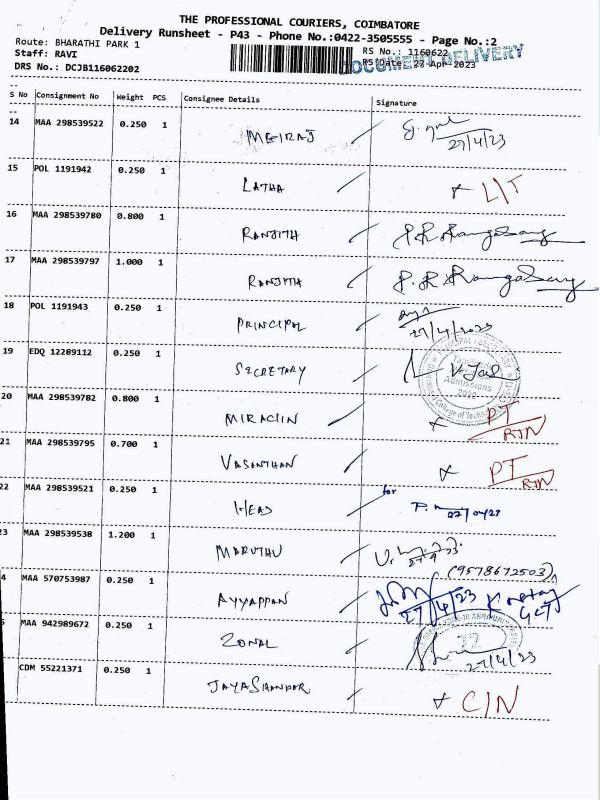 THE PROFESSIONAL COURIERS, COIMBATORE
Delivery Runsheet - P43 - Phone No.:0422-3505555 - Page No.:2
Route: BHARATHI PARK 1
RS No.: 1160622
Staff: RAVI
DOCUMENT DELIVERY
RS Date: 27-Apr-2023
DRS No.: DCJB116062202
S No Consignment No Weight PCS Consignee Details Signature
14 MAA 298539522 0.250 1 MEIRAJ
27/4/23
15 POL 1191942 0.250 1 LATHA x L/T
16 MAA 298539780 0.800 1 RANJITH
17 MAA 298539797 1.000 1 RANJITH
18 POL 1191943 0.250 1 PRINCIPAL
27/4/2023
19 EDQ 12289112 0.250 1 SECRETARY
Admissions
20 MAA 298539782 0.800 1 MIRACLIN x PT
RTN
21 MAA 298539795 0.700 1 VASANTHAN x PT
RTN
22 MAA 298539521 0.250 1 HEAD for
27/04/23
23 MAA 298539538 1.200 1 MARUTHU
(9578672503)
4 MAA 570753987 0.250 1 AYYAPPAN 27/4/23
GCT
MAA 942989672 0.250 1 ZONAL
72
27/4/23
CDM 55221371 0.250 1 JAYASHANKAR x C/N